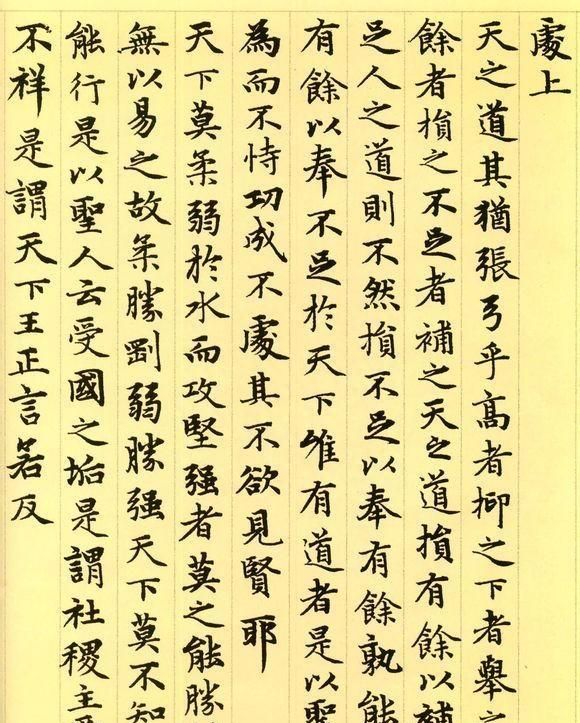 處上
天之道其猶張弓乎高者抑之下者舉之
餘者損之不足者補之天之道損有餘以補
足人之道則不然損不足以奉有餘孰能
有餘以奉不足於天下唯有道者是以聖
為而不恃功成不處其不欲見賢耶
天下莫柔弱於水而攻堅强者莫之能勝
無以易之故柔勝剛弱勝强天下莫不知
能行是以聖人云受國之垢是謂社稷主
不祥是謂天下王正言若反